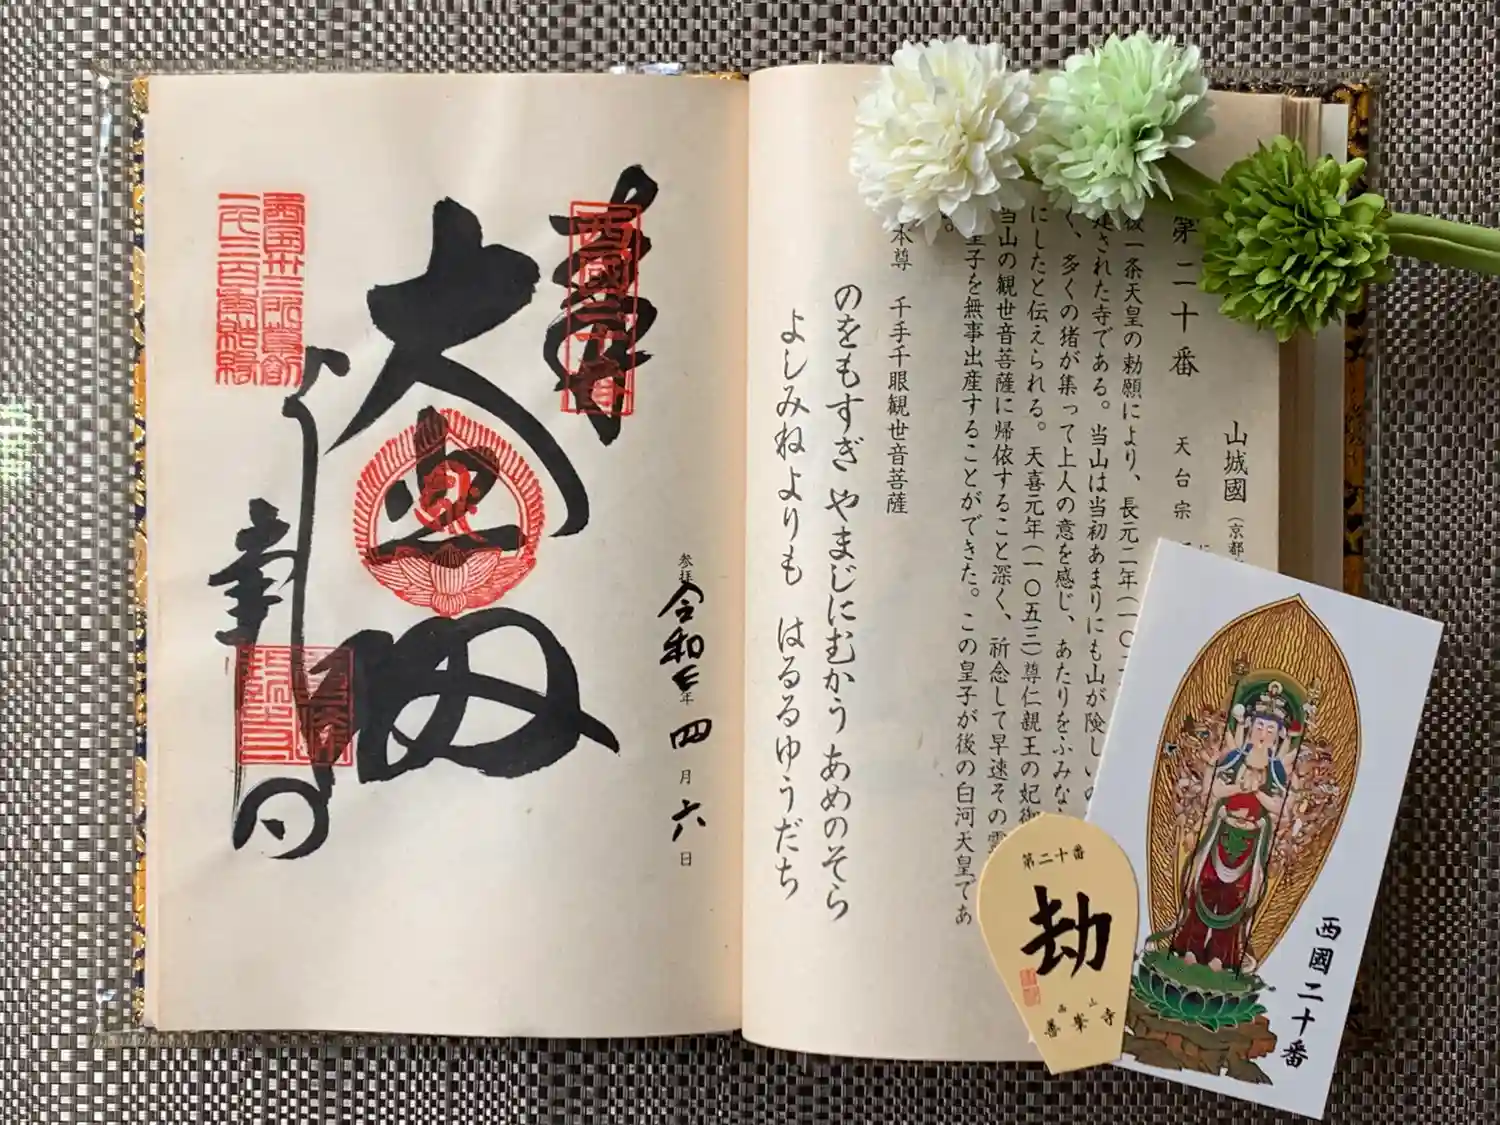 山城國（京都
第二十番　天台宗
後一条天皇の勅願により、長元二年（一〇
建された寺である。当山は当初あまりにも山が険しい
く、多くの猪が集って上人の意を感じ、あたりをふみな
にしたと伝えられる。天喜元年（一〇五三）尊仁親王の妃御
当山の観世音菩薩に帰依すること深く、祈念して早速その霊
皇子を無事出産することができた。この皇子が後の白河天皇であ
。
本尊　千手千眼観世音菩薩
のをもすぎ やまじにむかう あめのそら
よしみねよりも はるるゆうだち
参拝 令和七年 四月 六日
奉拝
西國二十番
大悲
第二十番
劫
西山
善峯寺
西國二十番